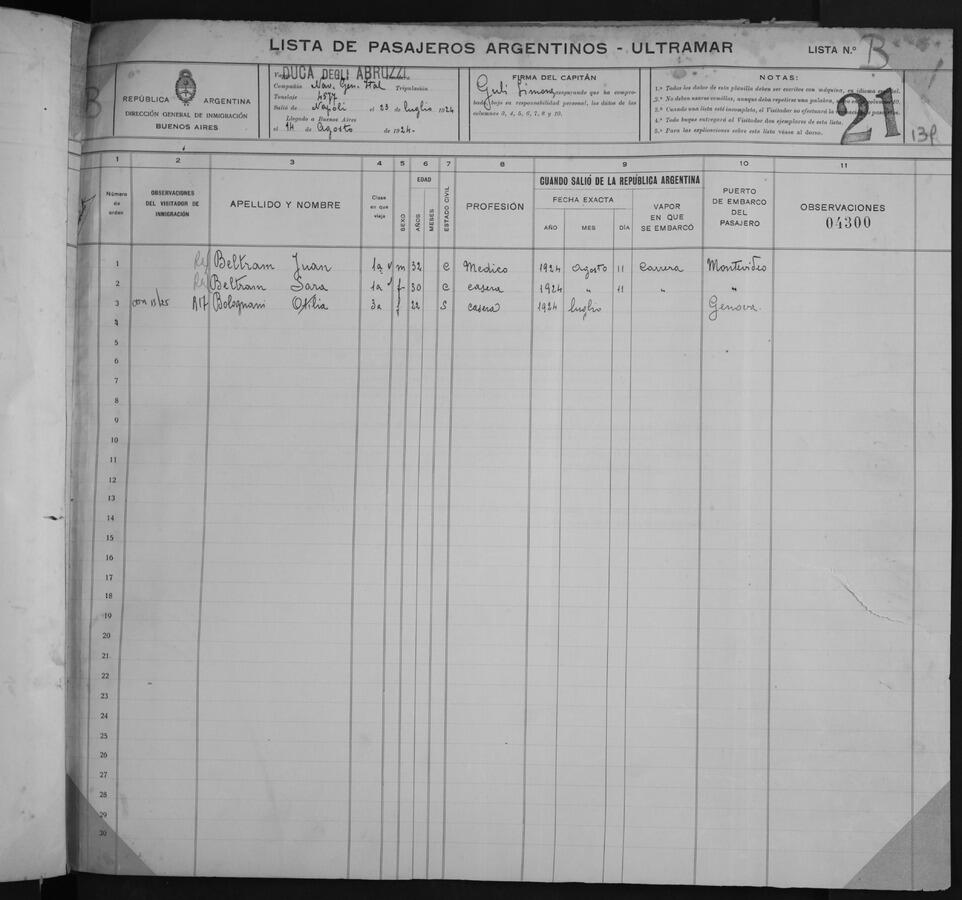 LISTA DE PASAJEROS ARGENTINOS - ULTRAMAR
LISTA N.º B
REPÚBLICA ARGENTINA
DIRECCIÓN GENERAL DE INMIGRACIÓN
BUENOS AIRES
DUCA DEGLI ABRUZZI
Compañía Nav. Gen. Ital Tripulación
Tonelaje
Salió de Napoli el 23 de luglio 1924
Llegado a Buenos Aires
el 14 de Agosto de 1924.
FIRMA DEL CAPITÁN
asegurando que ha compro-
bado, bajo su responsabilidad personal, los datos de las
columnas 3, 4, 5, 6, 7, 8 y 10.
NOTAS:
1.ª Todos los datos de esta planilla deben ser escritos con máquina, en idioma
2.ª No deben usarse comillas, aunque deba repetirse una palabra,
3.ª Cuando una lista esté incompleta, el Visitador no efectuará la
4.ª Todo buque entregará al Visitador dos ejemplares de esta lista.
5.ª Para las explicaciones sobre esta lista véase al dorso.
21
1 2 3 4 5 6 7 8 9 10 11
Número de orden
OBSERVACIONES DEL VISITADOR DE INMIGRACIÓN
APELLIDO Y NOMBRE
Clase en que viaja
SEXO
EDAD
AÑOS
MESES
ESTADO CIVIL
PROFESIÓN
CUANDO SALIÓ DE LA REPÚBLICA ARGENTINA
FECHA EXACTA
AÑO MES DÍA
VAPOR EN QUE SE EMBARCÓ
PUERTO DE EMBARCO DEL PASAJERO
OBSERVACIONES
04300
1 Beltram Juan 1a m 32 C Medico 1924 Agosto 11 Carrera Montevideo
2 Beltram Sara 1a f 30 C casera 1924 " 11 " "
3 Bolognani Otilia 3a f 22 S casera 1924 luglio Genova.
4
5
6
7
8
9
10
11
12
13
14
15
16
17
18
19
20
21
22
23
24
25
26
27
28
29
30